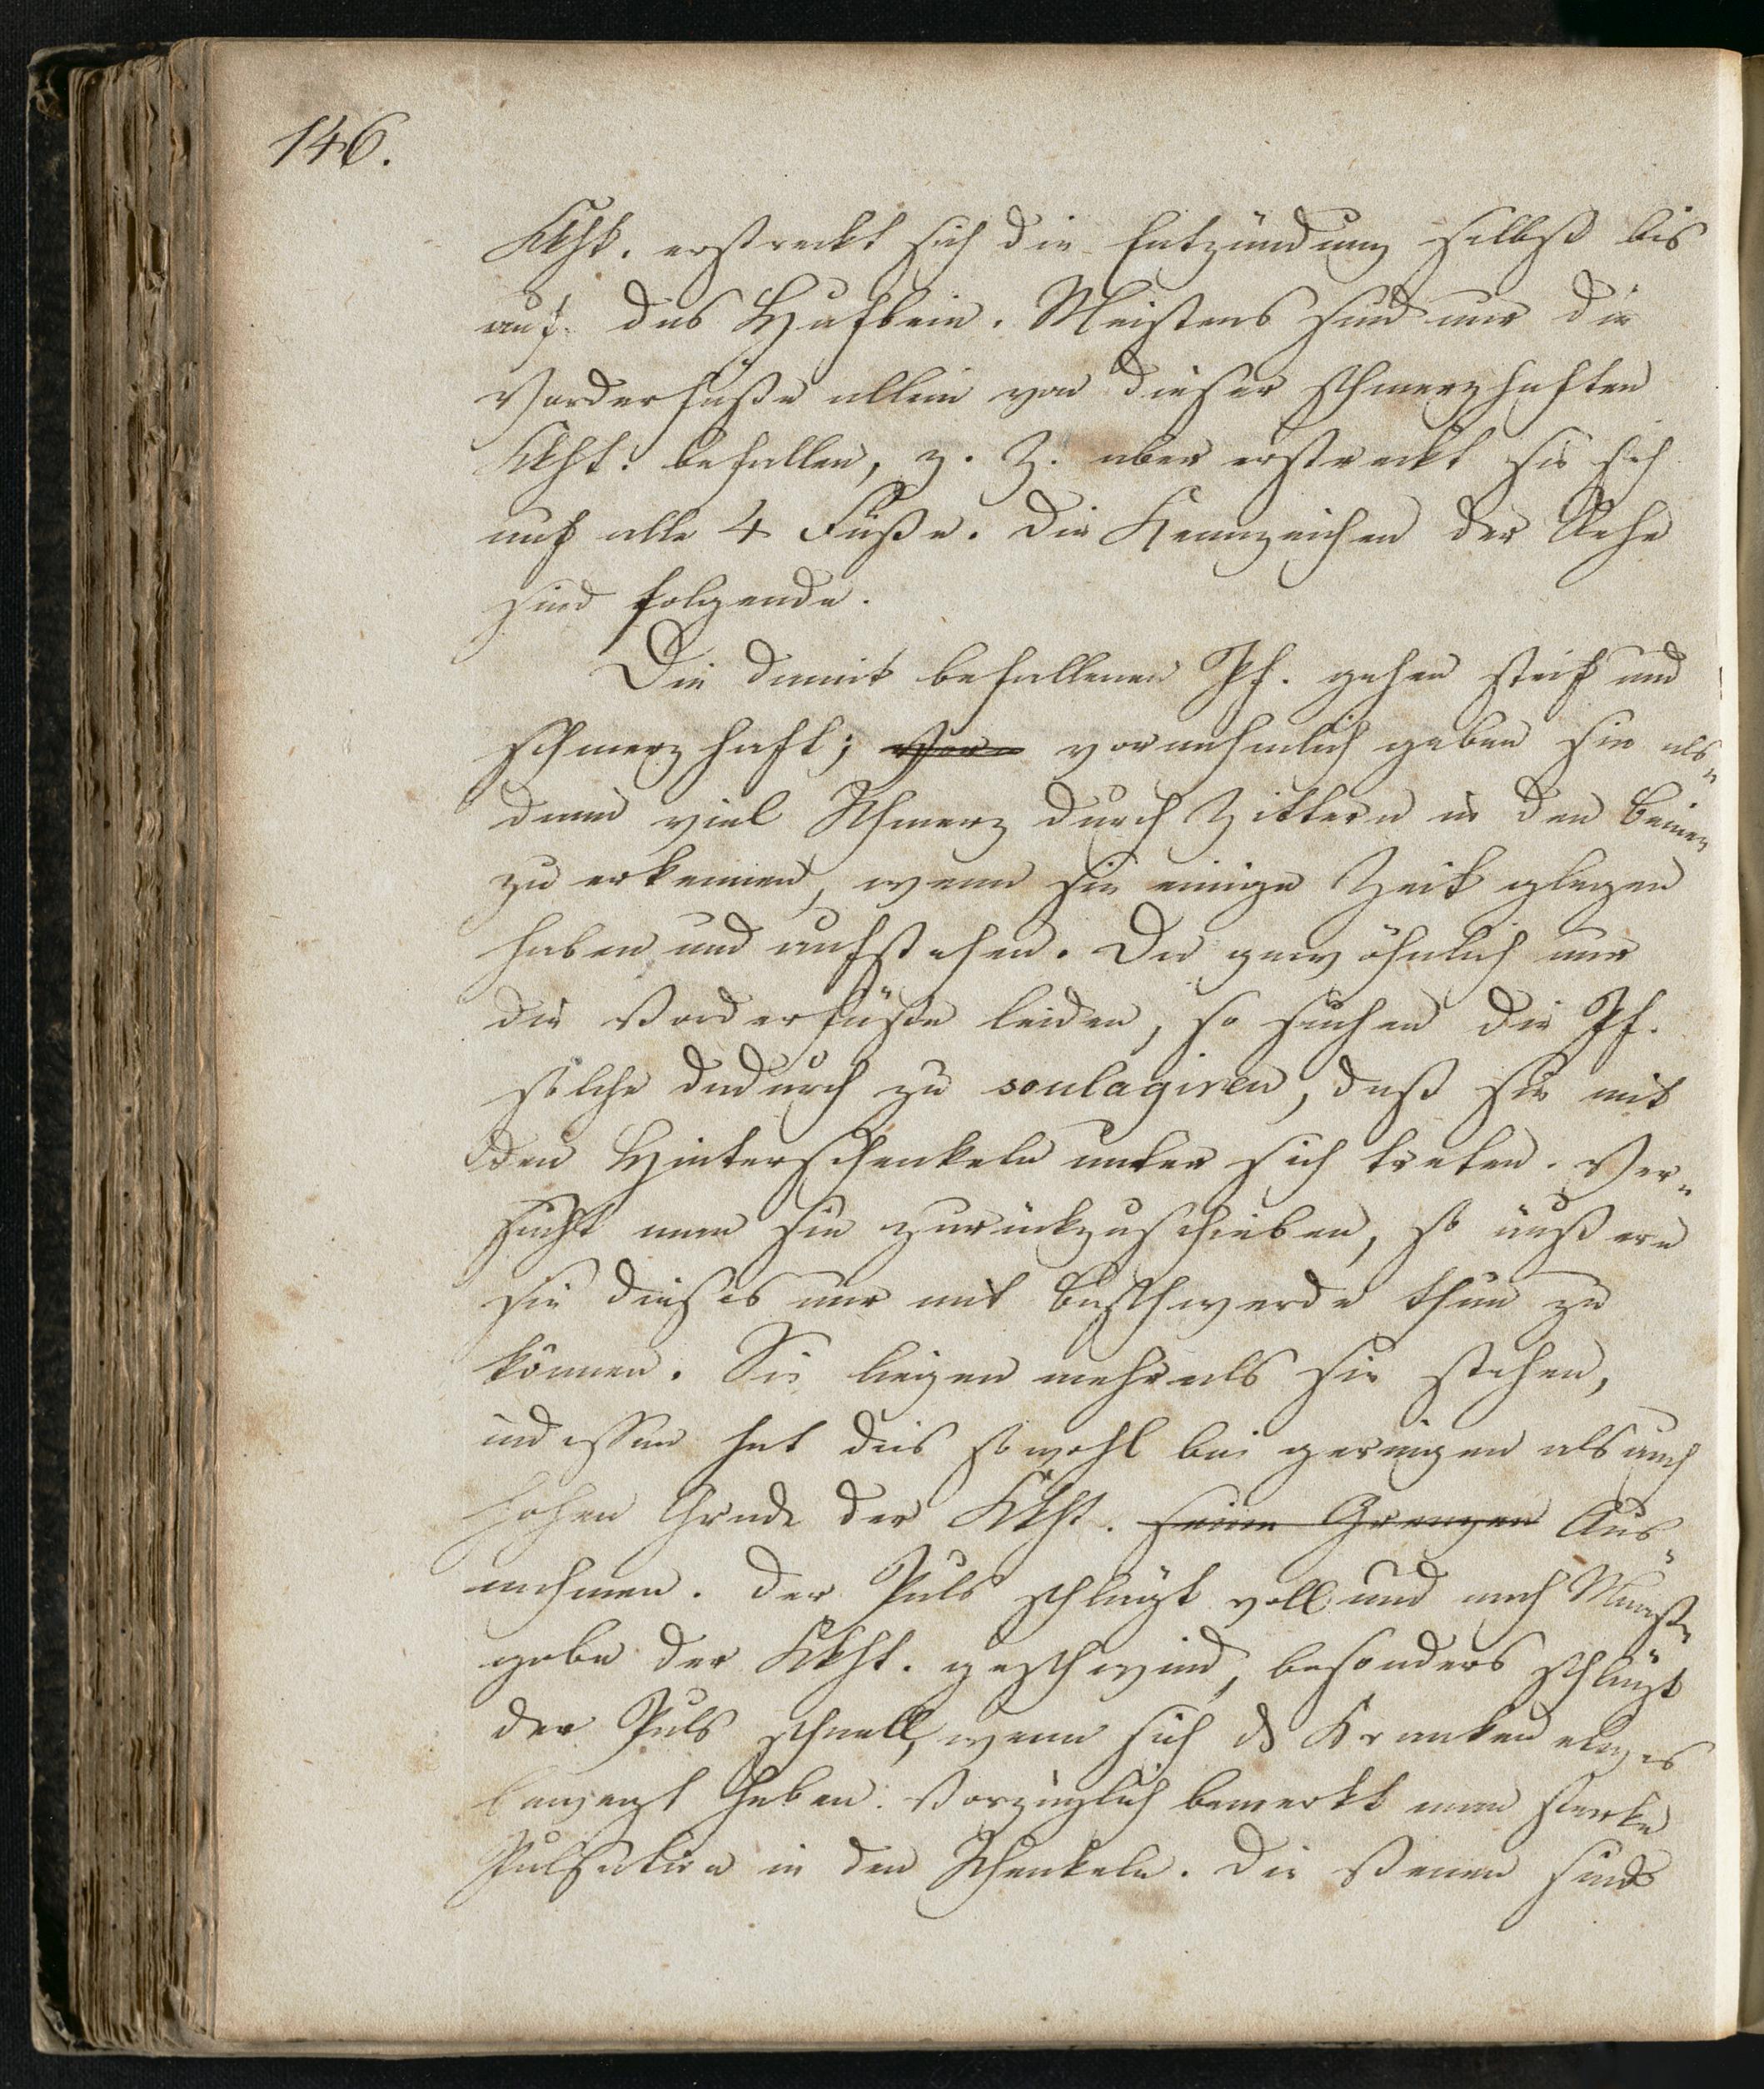 146.
Kkht. erstreckt sich die Entzündung selbst bis
auf das Hufbein. Meistens sind nur die
Vorderfüße allein von dieser schmerzhaften
Kkht. befallen, z. Z. aber erstreckt sie sich
auf alle 4 Füße. Die Kennzeichen der Rehe
sind folgende.
Die damit befallenen Pf. gehen steif und
schmerzhaft; vor vornehmlich geben sie als„
dann viel Schmerz durch Zittern in den Beinen
zu erkennen, wenn sie einige Zeit glegen
haben und aufstehen. Da gewöhnlich nur
die Vorderfüße leiden, so suchen die Pf.
solche dadurch zu soulagiren, daß sie mit
den Hinterschenkeln unter sich treten. Ver„
sucht man sie zurückzuschieben, so äußern
sie dieses nur mit Beschwerde thun zu
können. Sie liegen mehr als sie stehen,
indessen hat dies sowohl bei geringen als auch
hohen Grade der Kkht. seine Grenzen Aus„
nahmen. Der Puls schlägt voll und nach Maaß„
gabe der Kkht. geschwind, besonders schlägt
der Puls schnell, wenn sich d Kranken
bewegt haben. Vorzüglich bemerkt man starke
Pulsation in den Schenkeln. Die Venen sind